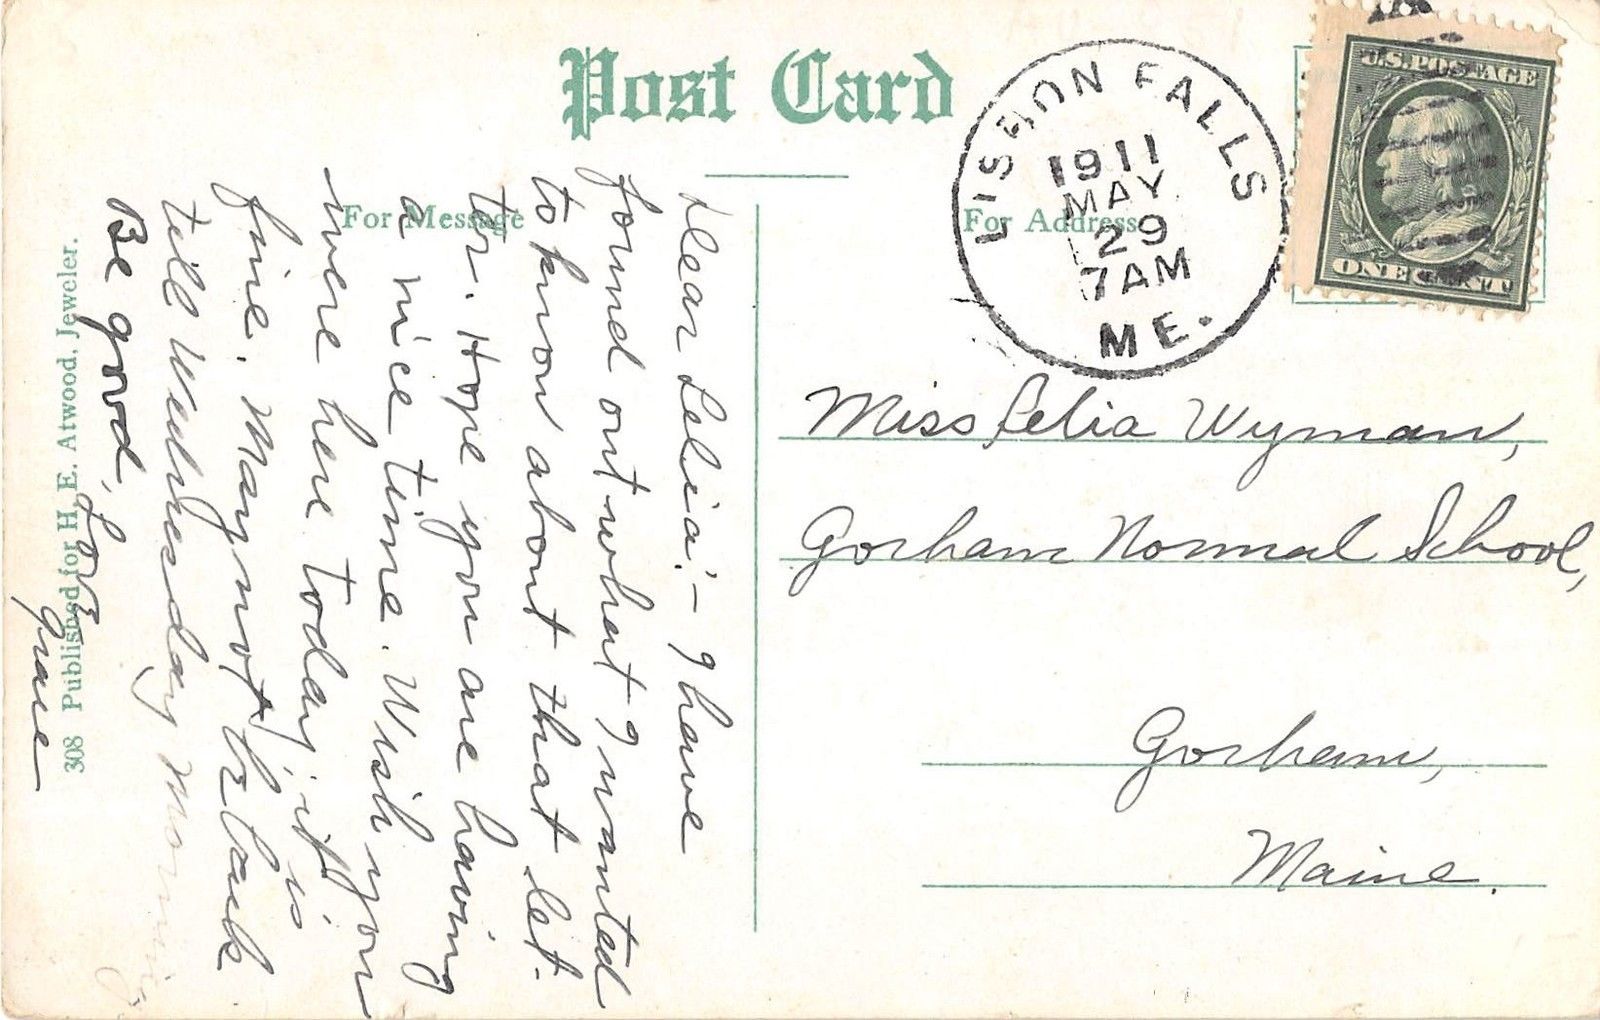 Post Card
For Message
For Address
LISBON FALLS
1911
MAY
29
7 AM
ME.
U.S. POSTAGE
ONE CENT
Miss Lelia Wyman,
Gorham Normal School,
Gorham,
Maine.
Dear Lelia:- I have
found out what I wanted
to know about that let-
ter. Hope you are having
a nice time. Wish you
were here today; it is
fine. May not be back
till Wednesday morning
Be good,
Love
Grace
308 Published for H. E. Atwood, Jeweler.